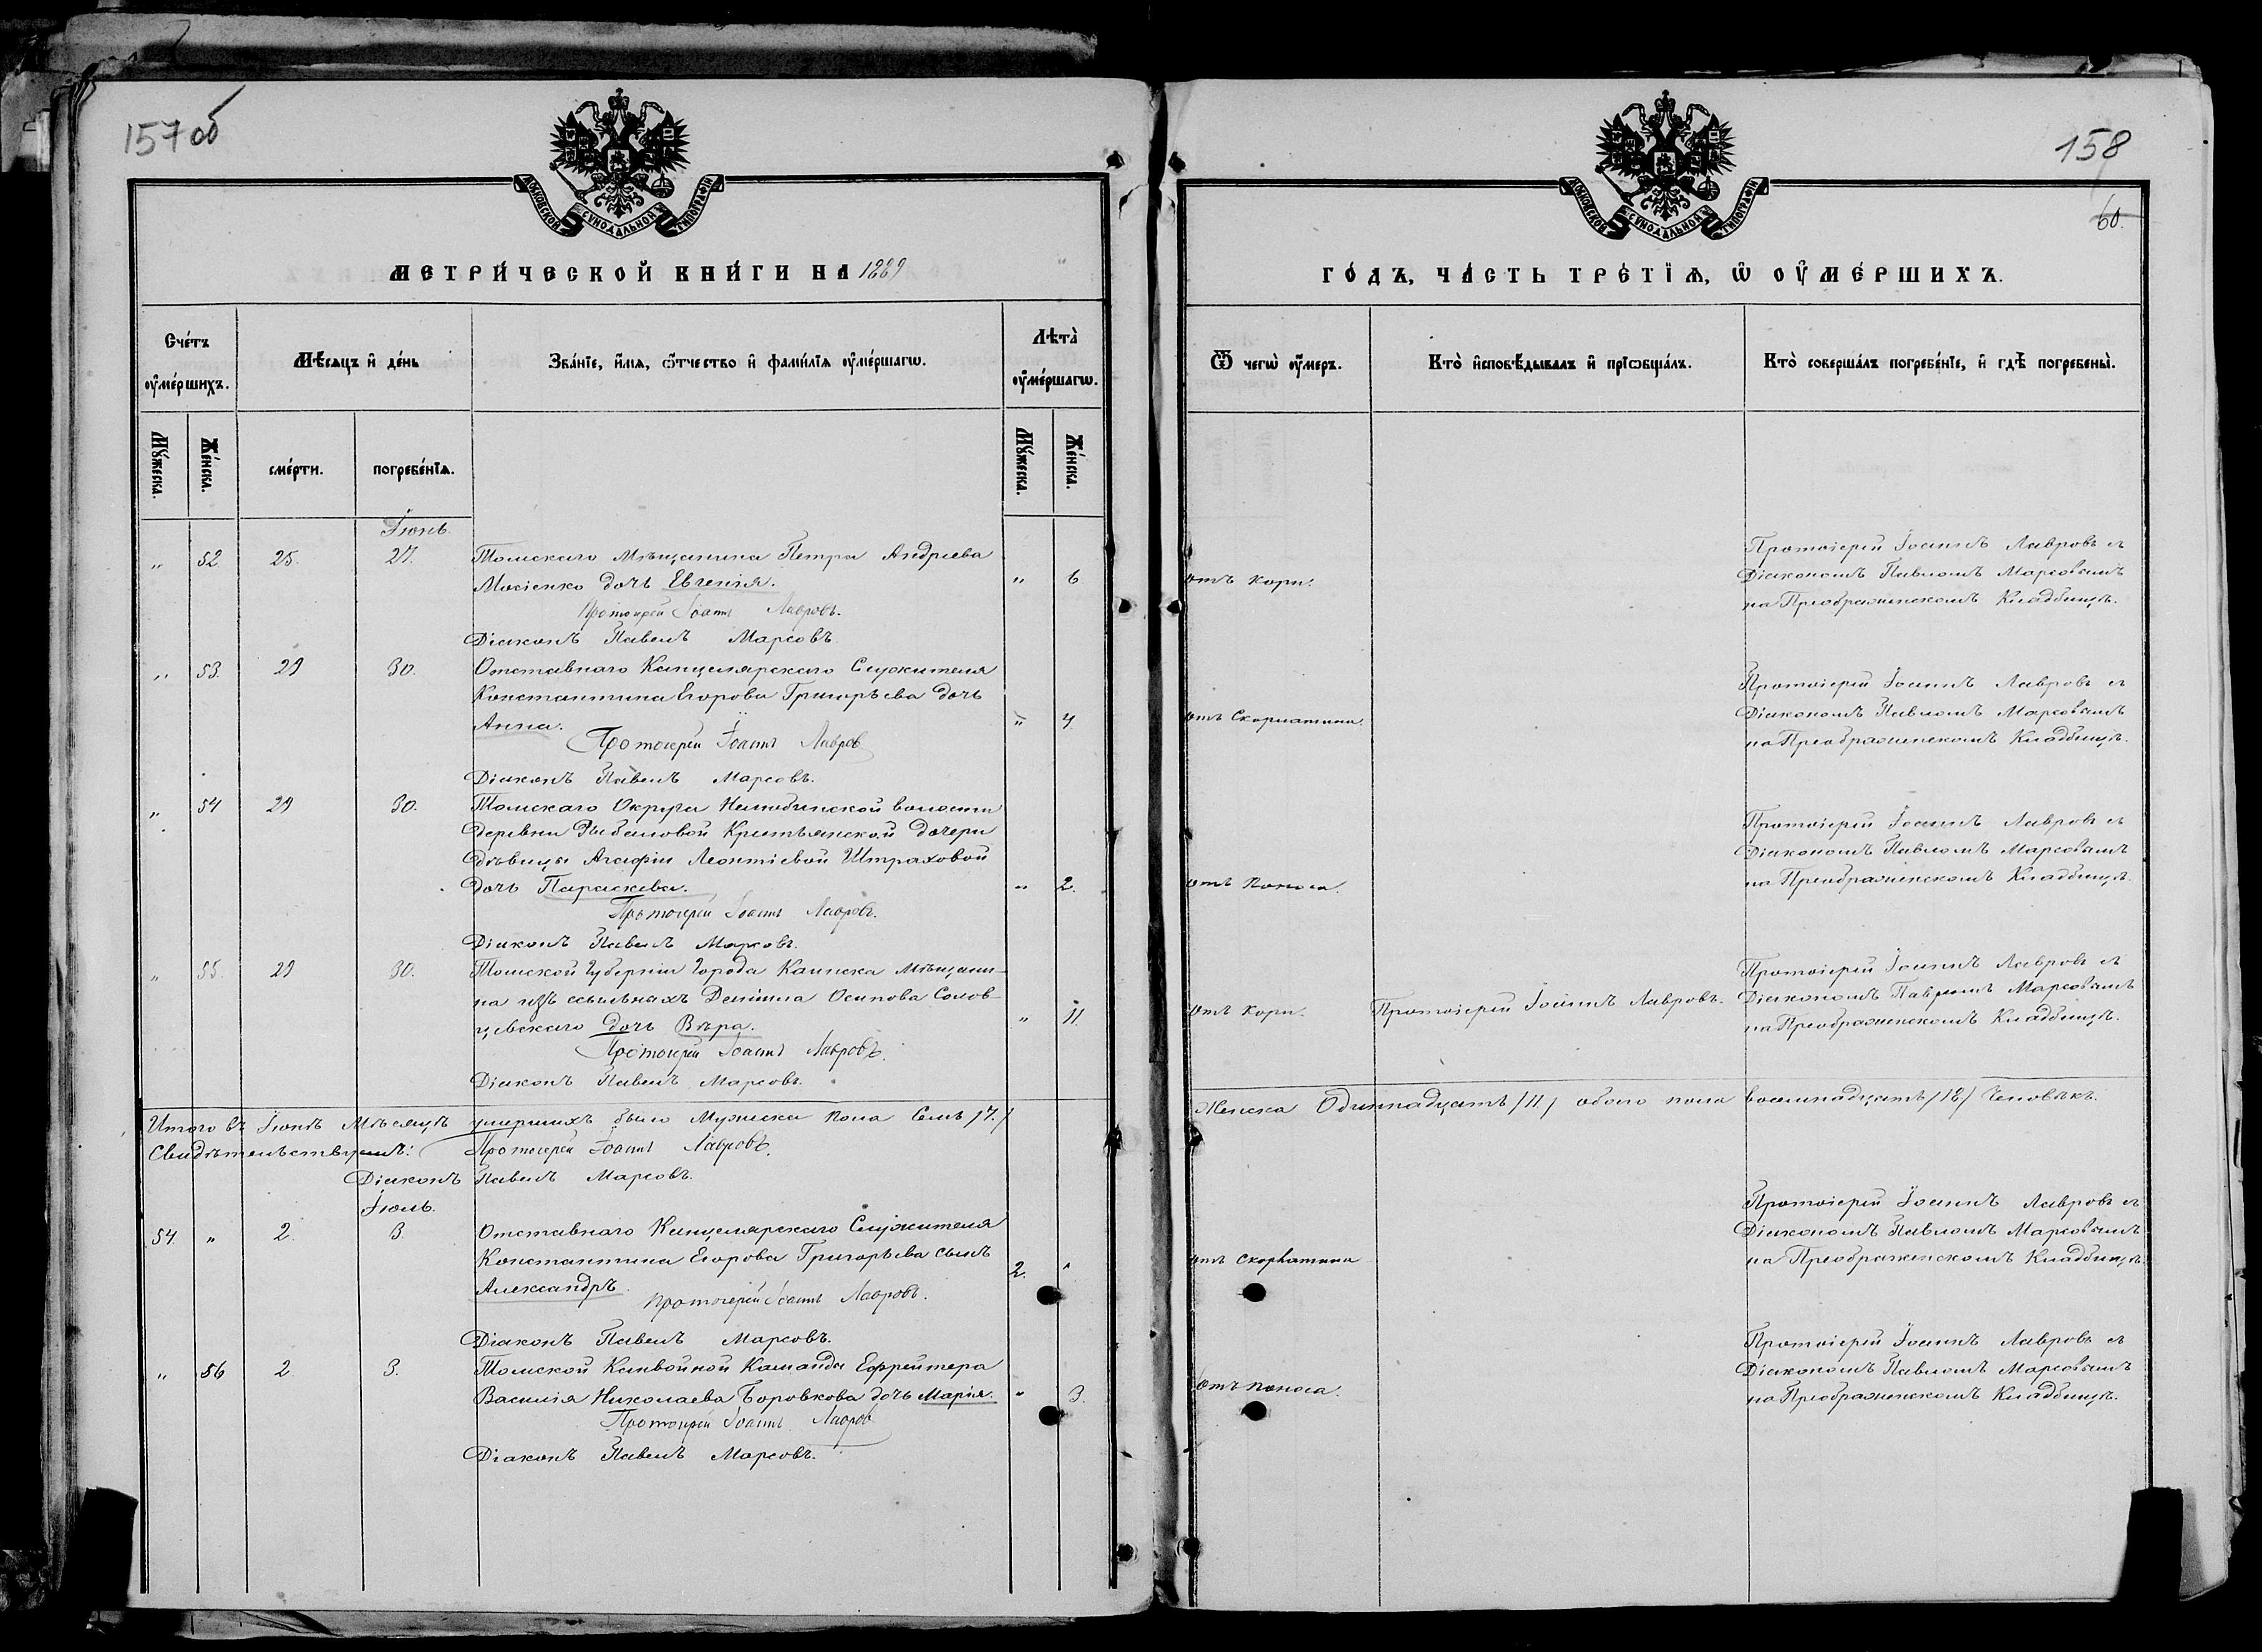 157 об
МОСКОВСКОЙ СѴНОДАЛЬНОЙ ТИПОГРАФІИ
МЕТРИ́ЧЕСКОЙ КНИ́ГИ НА 1889
Сче́тъ ᲂу҆ме́ршихъ.
Мѣ́сяцъ и҆ де́нь
Зва́нїе, и҆́мя, ѻ҆́тчество и҆ фами́лїя ᲂу҆ме́ршагѡ.
Лѣта̀ ᲂу҆ме́ршагѡ.
Мꙋ́жеска.
Же́нска.
сме́рти.
погребе́нїѧ.
Мꙋ́жеска.
Же́нска.
Іюнь.
„ 52 25. 27. Томскаго Мѣщанина Петра Андреева
Мосіенко дочь Евгенія. „ 6
Протоіерей Іоаннъ Лавровъ.
Діаконъ Павелъ Марсовъ.
„ 53. 29 30. Отставнаго Канцелярскаго Служителя
Константина Егорова Григорьева дочь
Анна. „ 4
Протоіерей Іоаннъ Лавров
Діаконъ Павелъ Марсовъ.
„ 54 29 30. Томскаго Округа Нелюбинской волости
деревни Рыбаловой Крестьянской дочери
дѣвицы Агафіи Леонтіевой Штраховой
дочь Параскева. „ 2.
Протоіерей Іоаннъ Лавровъ.
Діаконъ Павелъ Марсовъ.
„ 55. 29 30. Томской Губерніи Города Каинска Мѣщани-
на изъ ссыльныхъ Даніила Осипова Солов-
цевскаго дочь Вѣра. „ 11.
Протоіерей Іоаннъ Лавровъ.
Діаконъ Павелъ Марсовъ.
Итого въ Іюнѣ Мѣсяцѣ умершихъ было Мужеска пола Семь /7./
Свидѣтельствуемъ: Протоіерей Іоаннъ Лавровъ.
Діаконъ Павелъ Марсовъ.
Іюль.
54. „ 2. 3. Отставнаго Канцелярскаго Служителя
Константина Егорова Григорьева сынъ
Александръ. 2. „
Протоіерей Іоаннъ Лавровъ.
Діаконъ Павелъ Марсовъ.
„ 56 2 3. Томской Канвойной Команды Ефрейтера
Василія Николаева Боровкова дочь Марія. „ 3.
Протоіерей Іоаннъ Лавров
Діаконъ Павелъ Марсовъ.
158
60.
МОСКОВСКОЙ СѴНОДАЛЬНОЙ ТИПОГРАФІИ
ГО́ДЪ, ЧА́СТЬ ТРЕ́ТЇѦ, Ѡ҆ ОУ҆МЕ́РШИХЪ.
Ѿ чегѡ̀ ᲂу҆́меръ.
Кто̀ и҆сповѣ́дывалъ и҆ прїѡбща́лъ.
Кто̀ соверша́лъ погребе́нїе, и҆ гдѣ̀ погребены̀.
Протоіерей Іоаннъ Лавровъ съ
отъ кори. Діакономъ Павломъ Марсовымъ
на Преображенскомъ Кладбищѣ.
Протоіерей Іоаннъ Лавровъ съ
отъ Скорлатины. Діакономъ Павломъ Марсовымъ
на Преображенскомъ Кладбищѣ.
Протоіерей Іоаннъ Лавровъ съ
Діакономъ Павломъ Марсовымъ
отъ поноса. на Преображенскомъ Кладбищѣ.
Протоіерей Іоаннъ Лавровъ съ
отъ кори. Протоіерей Іоаннъ Лавровъ. Діакономъ Павломъ Марсовымъ
на Преображенскомъ Кладбищѣ.
Женска Одиннадцать /11/ обоего пола восемнадцать /18/ Человѣкъ.
Протоіерей Іоаннъ Лавровъ съ
Діакономъ Павломъ Марсовымъ
отъ Скорлатины на Преображенскомъ Кладбищѣ.
Протоіерей Іоаннъ Лавровъ съ
Діакономъ Павломъ Марсовымъ
отъ поноса. на Преображенскомъ Кладбищѣ.